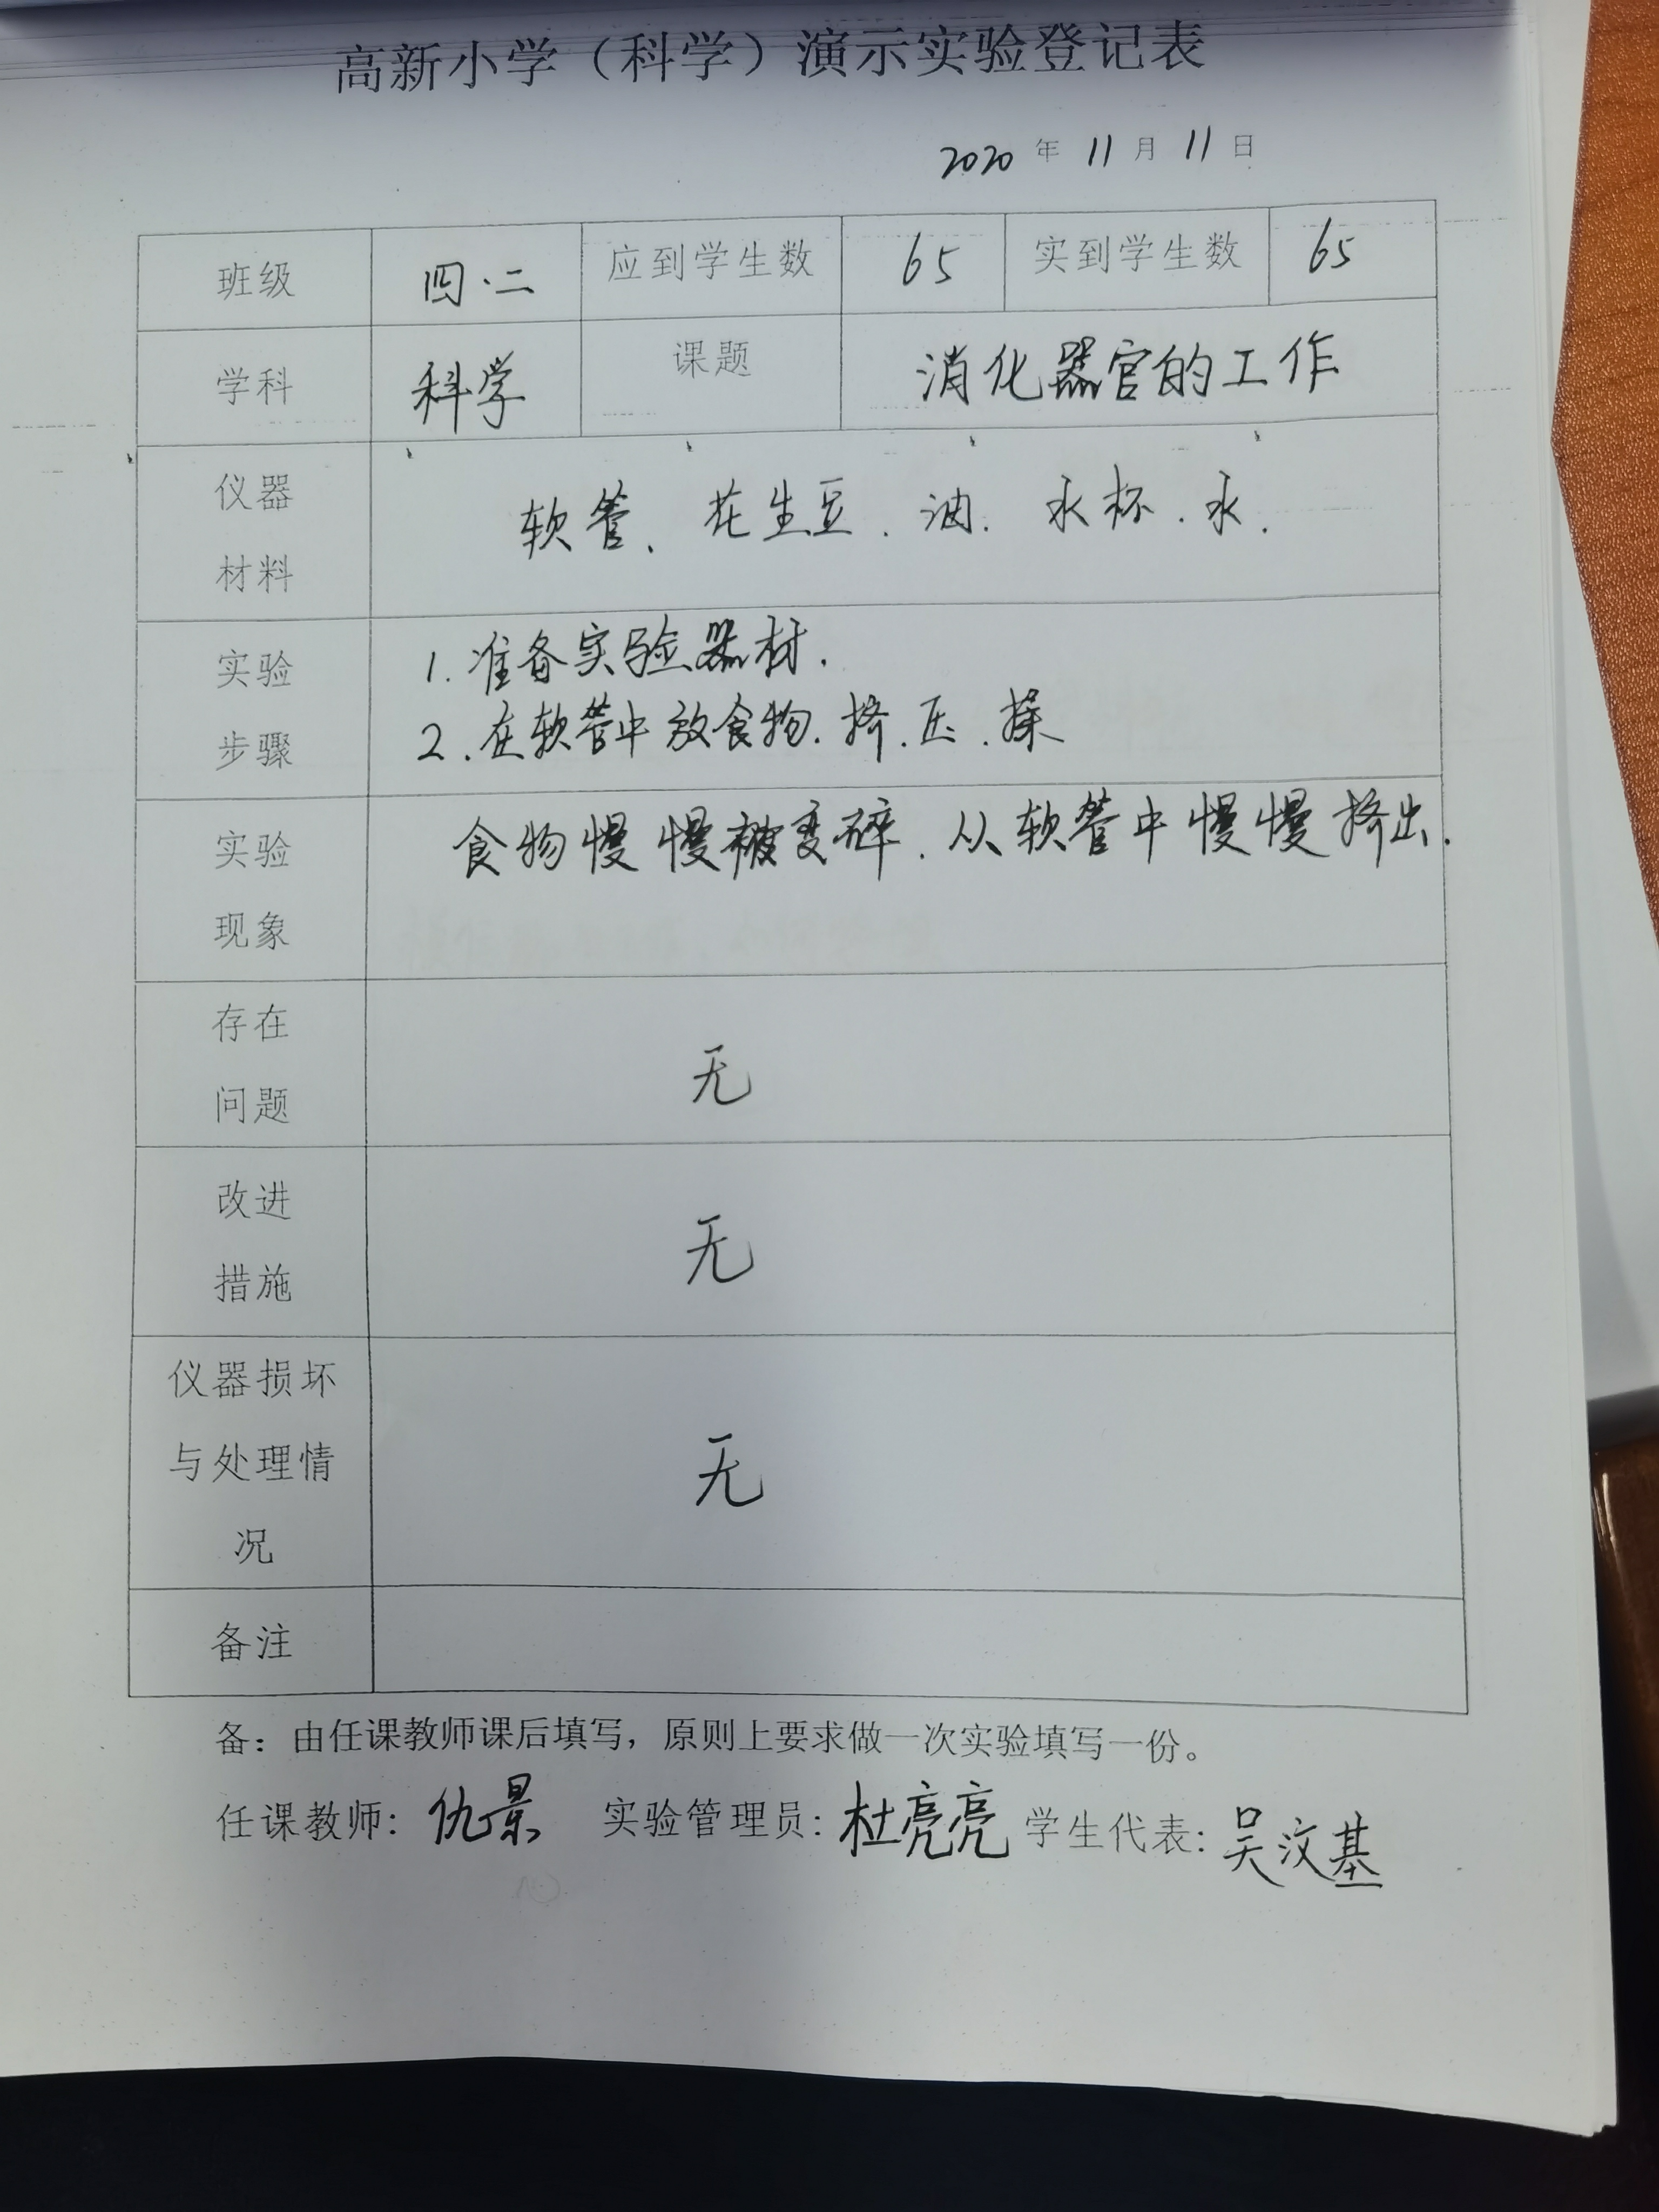 高新小学（科学）演示实验登记表
2020 年 11 月 11 日
班级 四·二 应到学生数 65 实到学生数 65
学科 科学 课题 消化器官的工作
仪器
材料
软管、花生豆．油．水杯．水．
实验
步骤
1.准备实验器材．
2.在软管中放食物．挤．压．揉
实验
现象
食物慢慢被变碎．从软管中慢慢挤出．
存在
问题
无
改进
措施
无
仪器损坏
与处理情
况
无
备注
备：由任课教师课后填写，原则上要求做一次实验填写一份。
任课教师：仇景 实验管理员：杜亮亮 学生代表：吴汶基